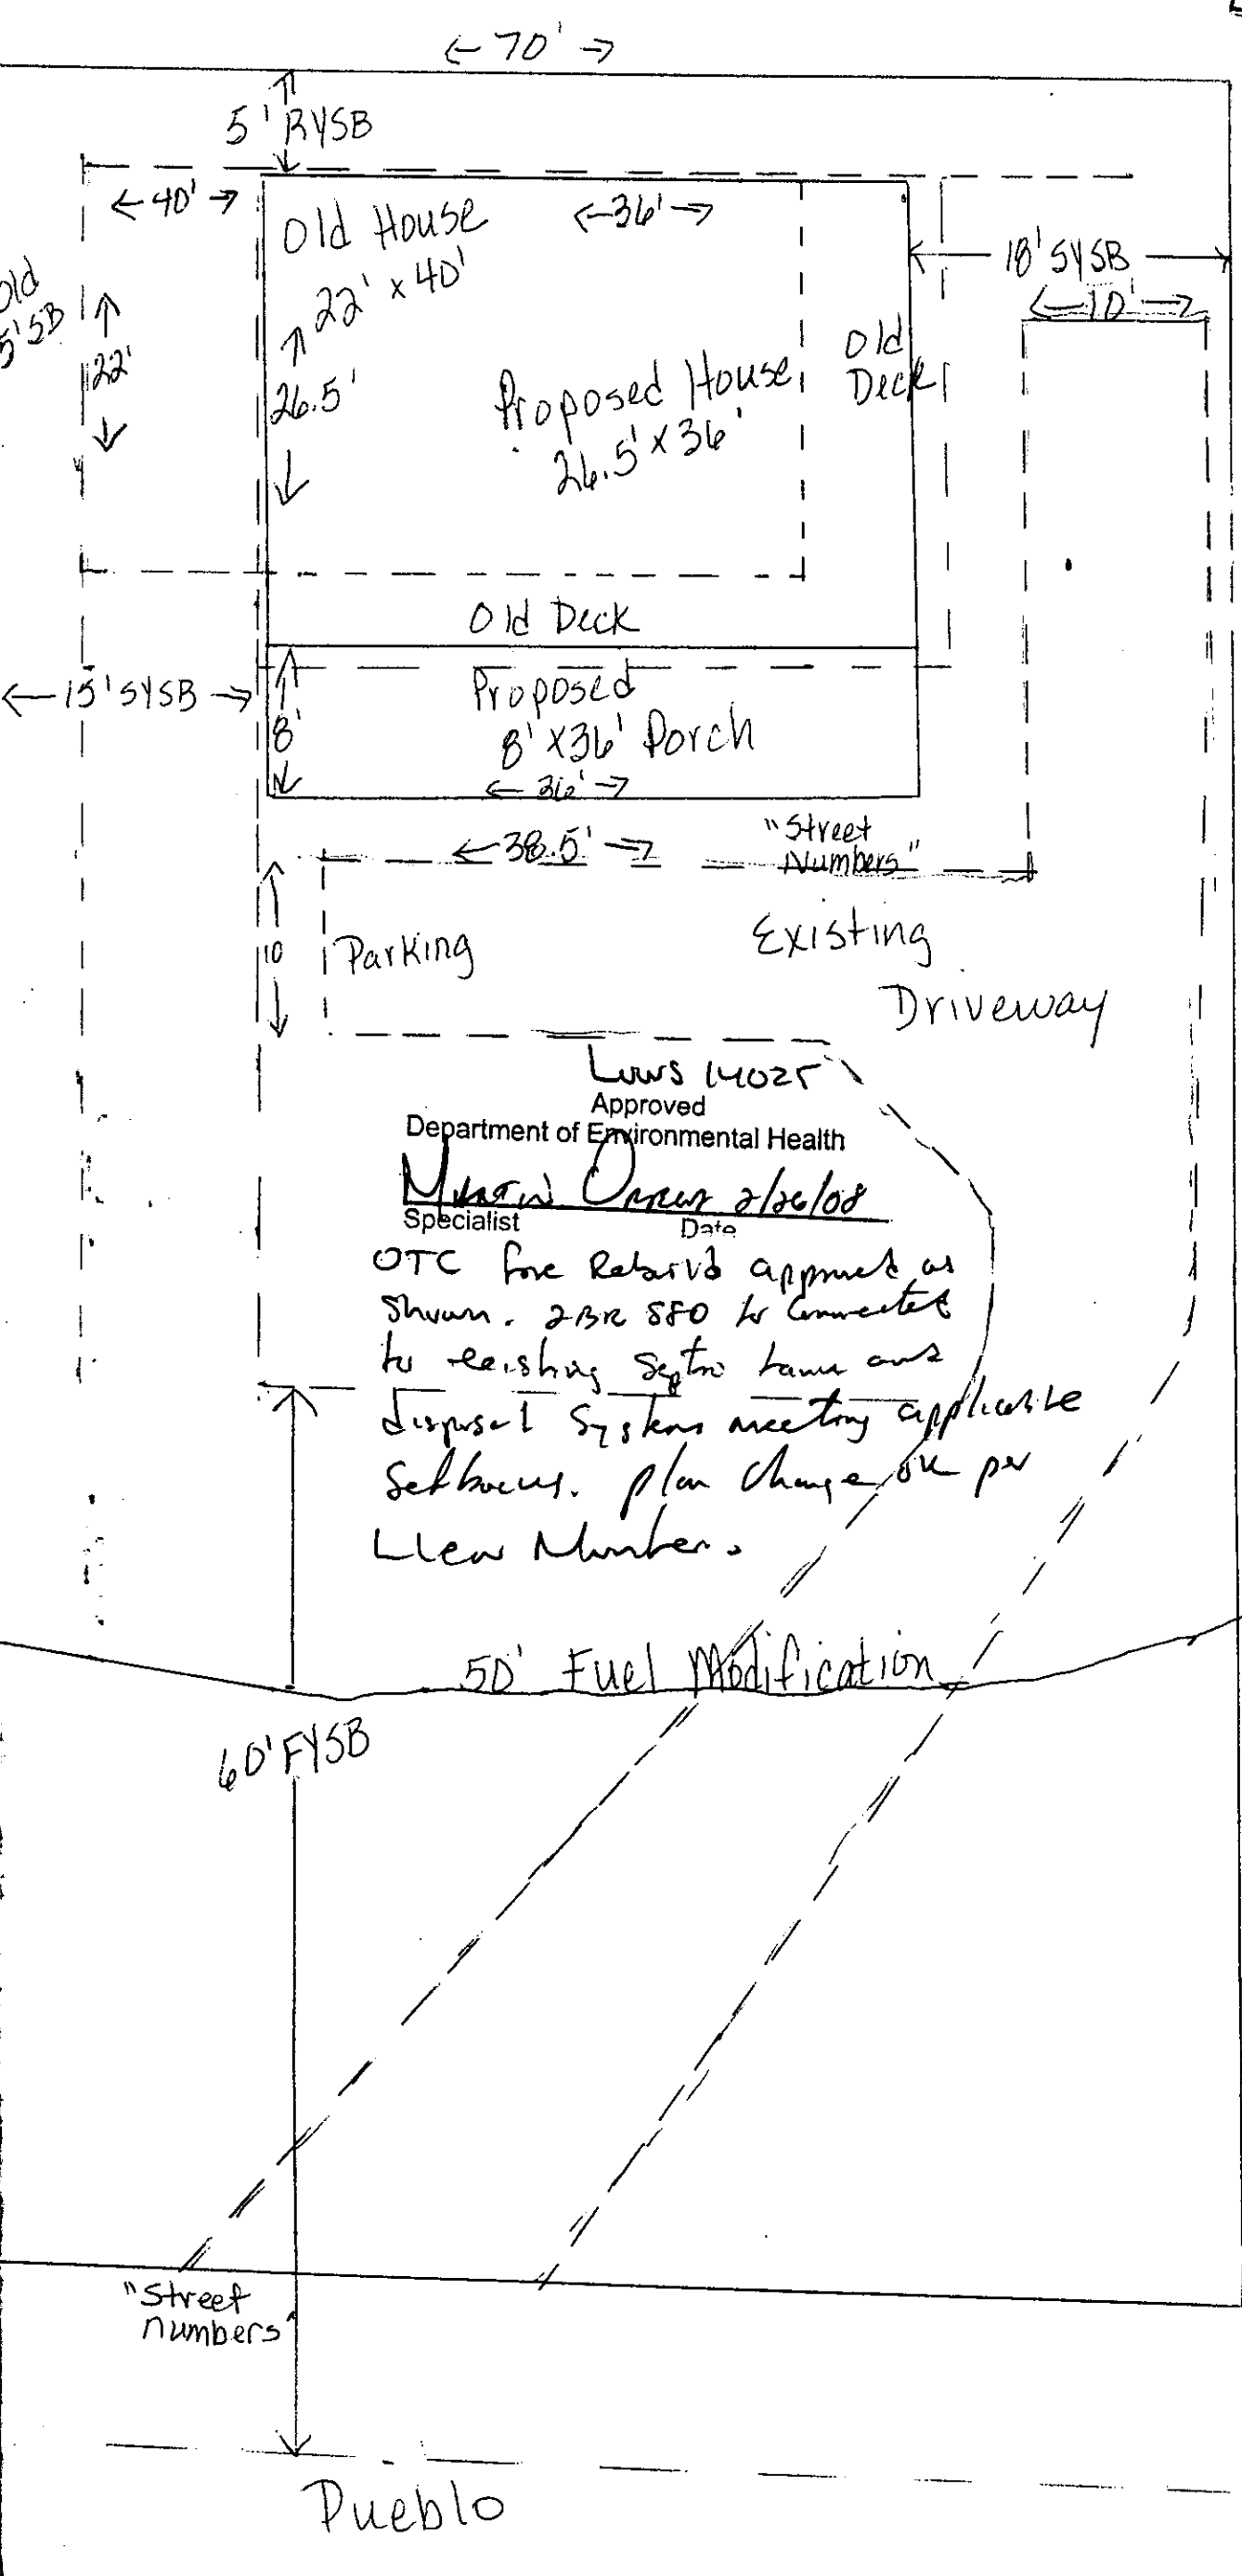 ← 70' →
5' RYSB
← 40' →
Old House
22' x 40'
← 36' →
18' SYSB
← 10' →
Old
5' SB
22'
26.5'
Proposed House
26.5' x 36'
Old
Deck
Old Deck
← 15' SYSB →
8'
Proposed
8' x 36' Porch
← 36' →
← 38.5' →
"Street
Numbers"
10
Parking
Existing
Driveway
LUWS 14025
Approved
Department of Environmental Health
2/26/08
Specialist Date
OTC fire Rebuild approved as
shown. 2BR SFD to connected
to existing septic tank and
disposal system meeting applicable
setbacks. plan change ok per
50' Fuel Modification
60' FYSB
"Street
numbers"
Pueblo